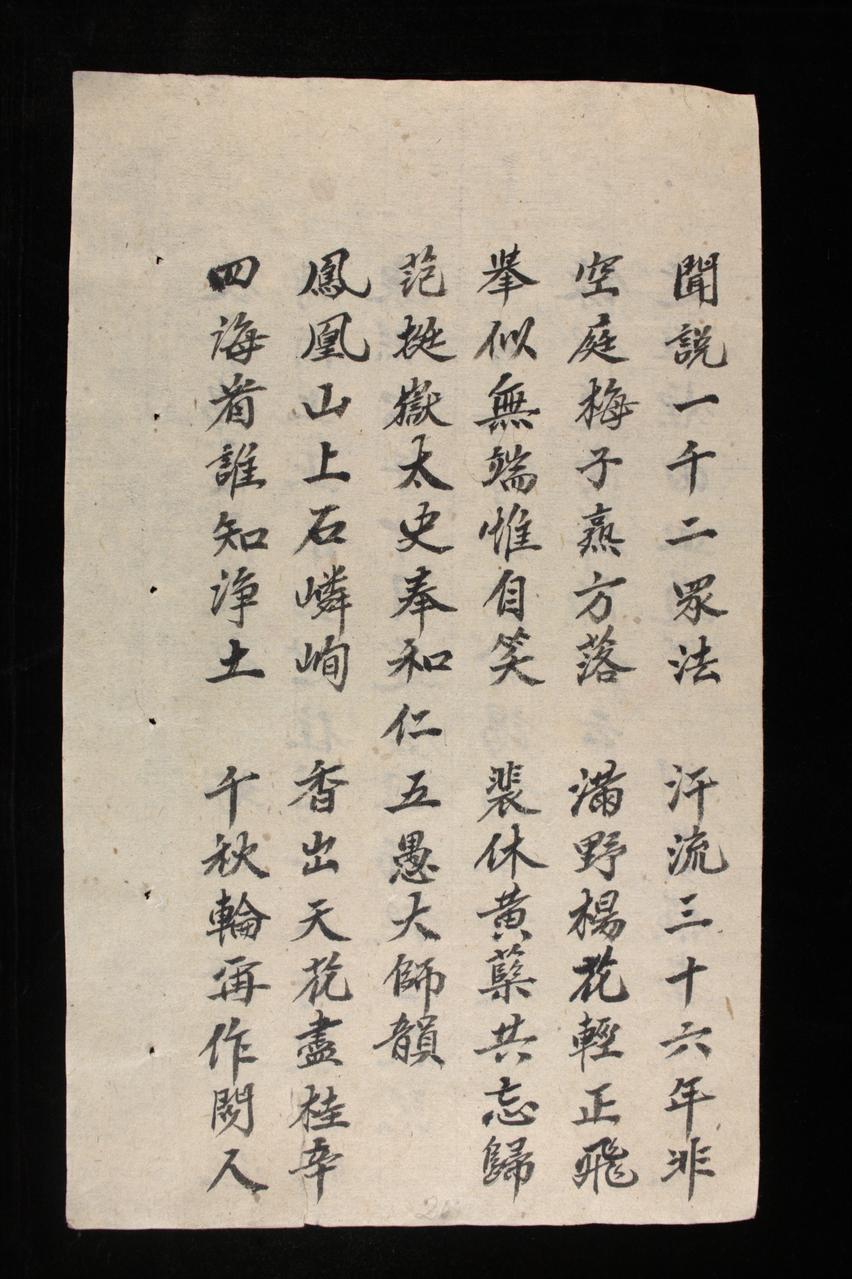 聞説一千二眾法 汗流三十六年非
空庭梅子熟方落 滿野楊花輕正飛
舉似無端惟自笑 裴休黄蘗共忘歸
范挺嶽太史奉和仁五愚大師韻
鳳凰山上石嶙峋 香出天花盡桂辛
四海着誰知浄土 千秋輪再作閑人